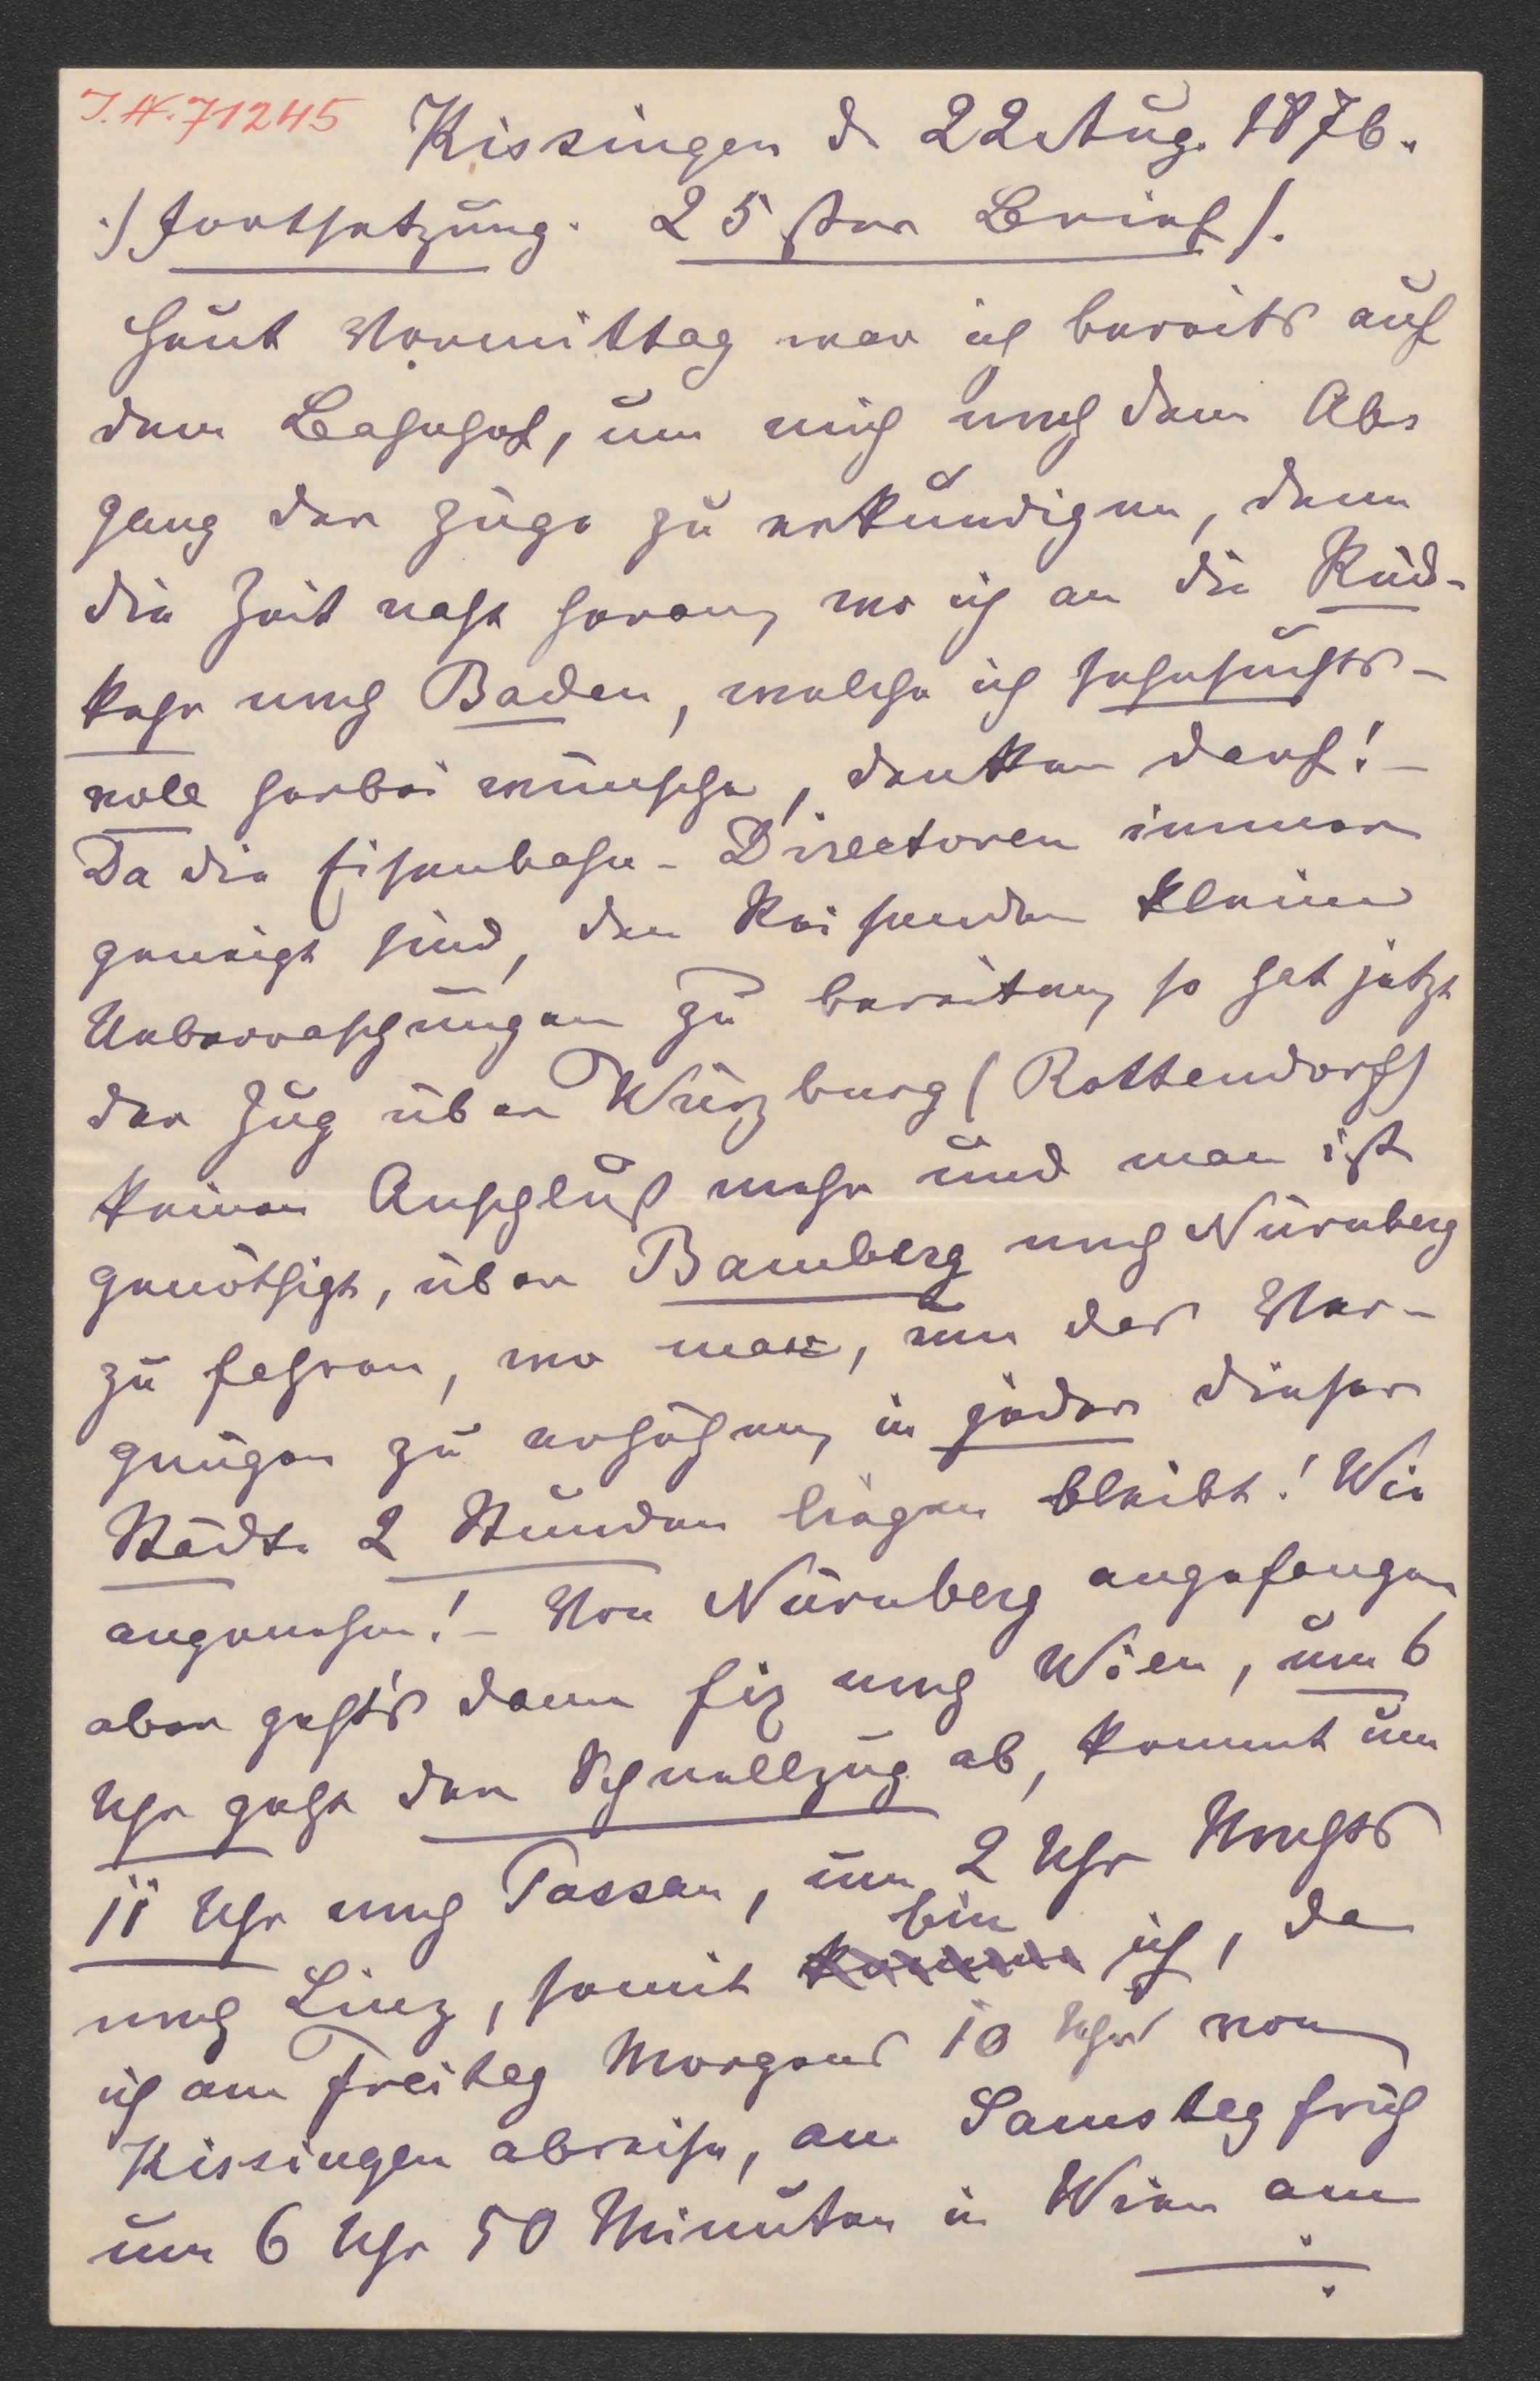 I. N. 71245
Kissingen d. 22 Aug. 1876.
./ Fortsetzung. 25ster Brief /.
Heut Vormittag war ich bereits auf
dem Bahnhof, um mich nach dem Ab-
gang der Züge zu erkundigen, denn
die Zeit naht heran, wo ich an die Rück-
kehr nach Baden, welche ich sehnsuchts-
voll herbei wünsche, denken darf! –
Da die Eisenbahn-Directoren immer
geneigt sind, den Reisenden kleine
Ueberraschungen zu bereiten, so hat jetzt
der Zug über Würzburg (Rottendorf)
keinen Anschluß mehr und man ist
genöthigt, über Bamberg nach Nürnberg
zu fahren, wo man, um das Ver-
gnügen zu erhöhen, in jeder dieser
Städte 2 Stunden liegen bleibt! Wie
angenehm! – Von Nürnberg angefangen
aber geht's dann fix nach Wien, um 6
Uhr geht der Schnellzug ab, kommt um
11 Uhr nach Passau, um 2 Uhr Nachts
nach Linz, somit komme bin ich, da
ich am Freitag Morgens 10 Uhr von
Kissingen abreise, am Samstag früh
um 6 Uhr 50 Minuten in Wien am